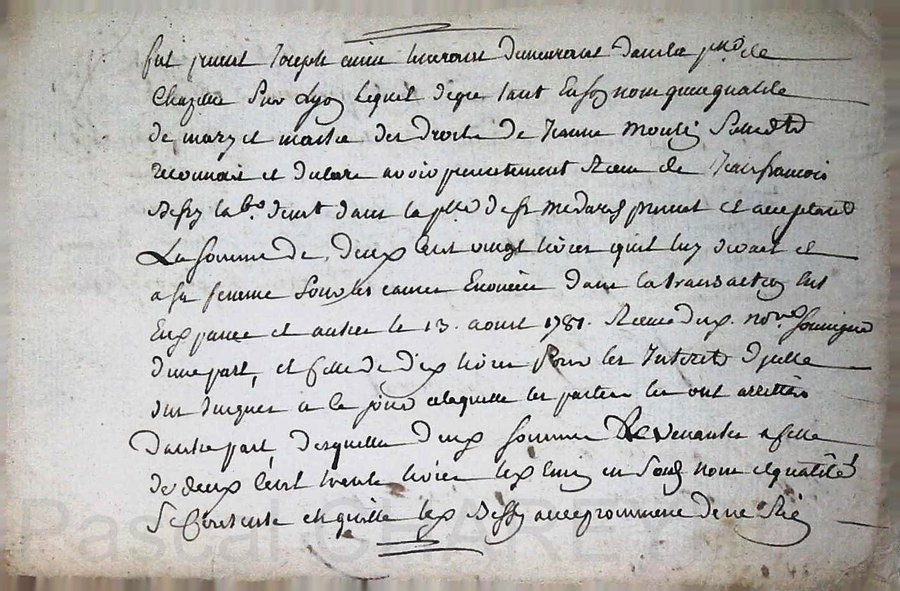 fut présent Joseph demeurant dans la psse de
Chazelle Sur Lyon lequel de gré tant En son nom que qualité
de mary et maitre des droits de Jeanne Moulin Sa
reconnait et declare avoir presentement Receu de Jean françois
labr dem.t dans la psse de st medard present et acceptant
La Somme de deux Cent vingt livres qu'il luy devait et
a sa femme Pour les causes Enoncées Dans la transaction
Entre parties le 13. aoust 1781. Receue du notre Soussigné
d'une part, et Celle de dix livres Pour les Interets d'jcelle
dus jusques a ce jour a laquelle les parties les ont arrettés
d'autre part, desquelles deux Sommes Revenantes a Celle
de deux Cent trente livres en son nom et qualité
Se Contente et quitte le Sr avec promesse de ne Rien
Pascal